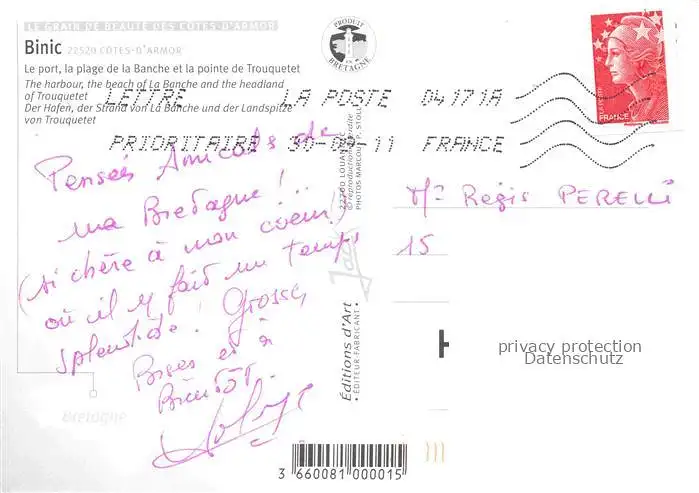 LE GRAIN DE BEAUTÉ DES CÔTES-D'ARMOR
Binic 22520 CÔTES-D'ARMOR
Le port, la plage de la Banche et la pointe de Trouquetet
The harbour, the beach of La Banche and the headland
of Trouquetet
Der Hafen, der Strand von La Banche und der Landspitze
von Trouquetet
PRODUIT
EN
BRETAGNE
LETTRE LA POSTE 04171A
PRIORITAIRE 30-09-11 FRANCE
LA POSTE
FRANCE
Pensées Amicales de
ma Bretagne !!
(si chère à mon coeur !)
où il y fait un temps
splendide ! Grosses
Bises et à
Bientôt.
22700 LOUANNEC
© reproduction interdite
PHOTOS MARCOU / P. STOLL
Jack
Éditions d'Art
• ÉDITEUR-FABRICANT •
Mr Régis PERELLI
15
privacy protection
Datenschutz
Bretagne
3 660081 000015